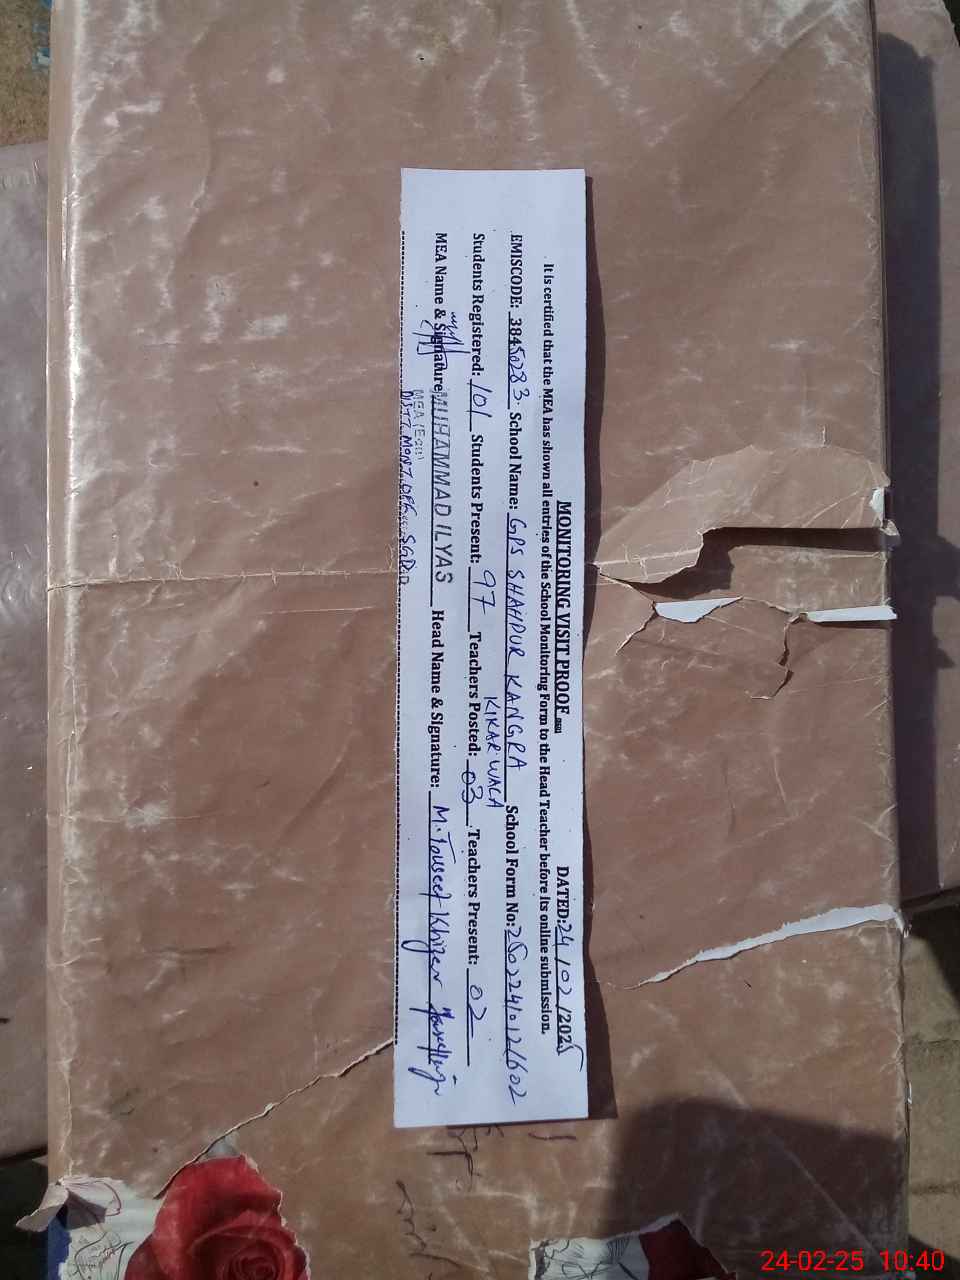 MONITORING VISIT PROOF
DATED: 24/02/2025
It is certified that the MEA has shown all entries of the School Monitoring Form to the Head Teacher before its online submission.
EMISCODE: 38450283. School Name: GPS SHAHPUR KANGRA School Form No: 2502241012/602
KIKAR WALA
Students Registered: 101 Students Present: 97 Teachers Posted: 03 Teachers Present: 02
MEA Name & Signature MUHAMMAD ILYAS Head Name & Signature: M. Touseef Khizer
MEA
24-02-25 10:40